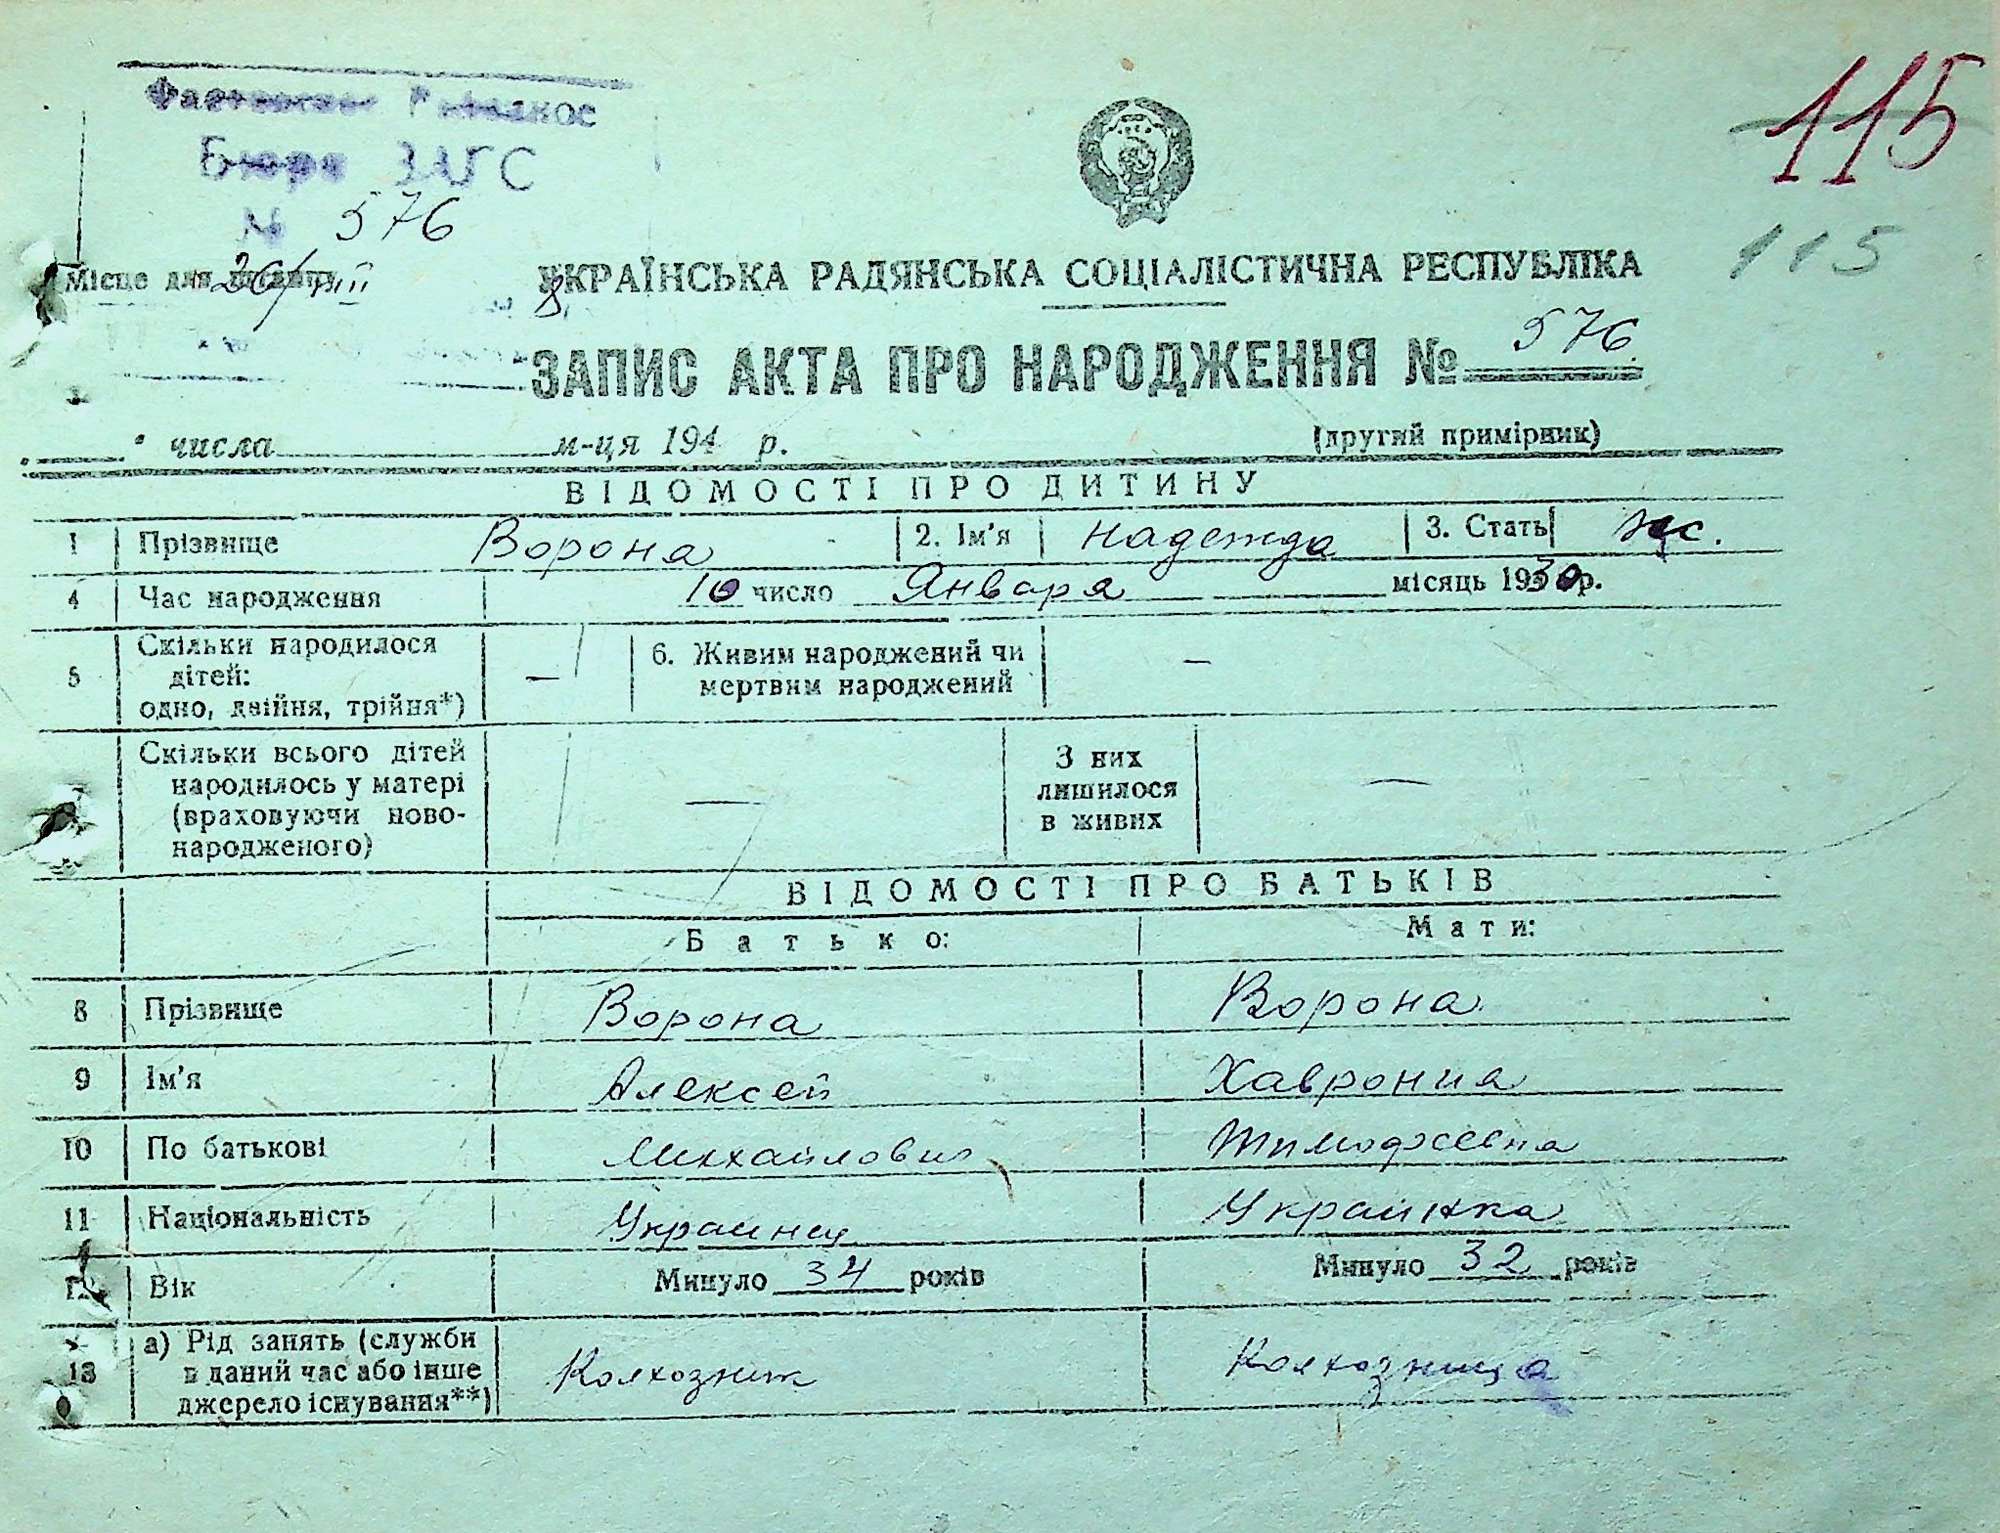 115
Бюро ЗАГС
№ 576
115
Місце для штампу
26/VIII 8
УКРАЇНСЬКА РАДЯНСЬКА СОЦІАЛІСТИЧНА РЕСПУБЛІКА
ЗАПИС АКТА ПРО НАРОДЖЕННЯ № 576
числа м-ця 194 р. (другий примірник)
ВІДОМОСТІ ПРО ДИТИНУ
1 Прізвище Ворона 2. Ім'я Надежда 3. Стать жс.
4 Час народження 10 число Января місяць 1930 р.
5 Скільки народилося дітей: одно, двійня, трійня*) — 6. Живим народжений чи мертвим народжений —
Скільки всього дітей народилось у матері (враховуючи ново-народженого) — З них лишилося в живих —
ВІДОМОСТІ ПРО БАТЬКІВ
Батько: Мати:
8 Прізвище Ворона Ворона
9 Ім'я Алексей Хаврония
10 По батькові Михайлович Тимофеевна
11 Національність Украинец Украинка
12 Вік Минуло 34 років Минуло 32 років
13 а) Рід занять (служби в даний час або інше джерело існування**) Колхозник Колхозница